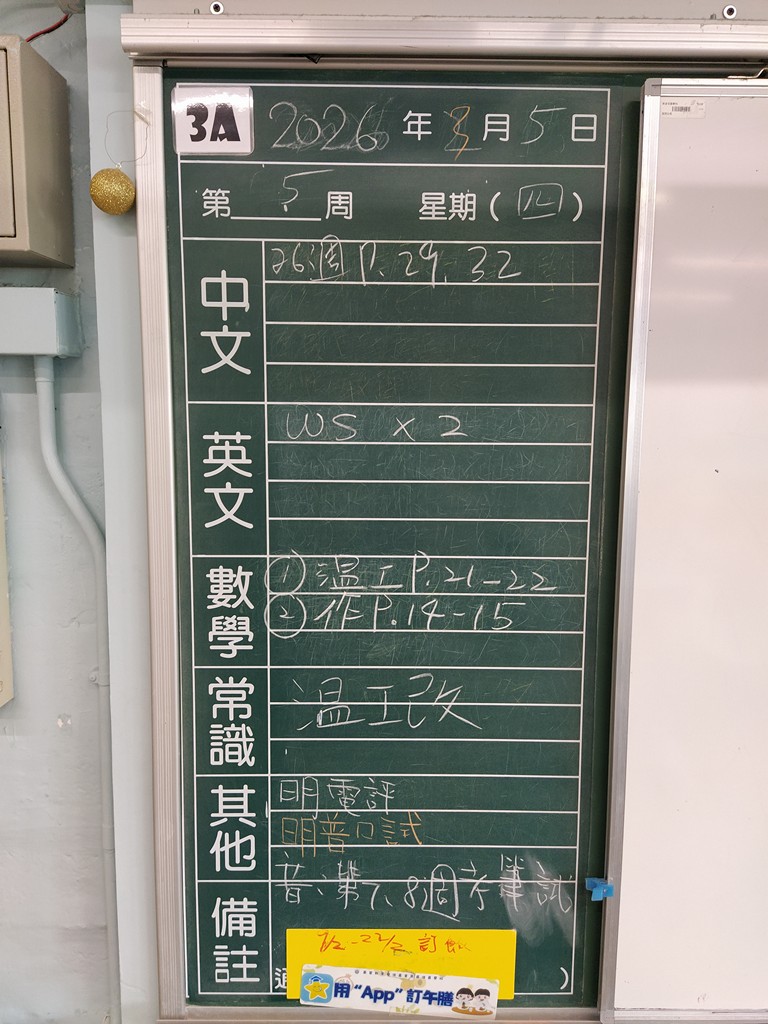 3A 2026年3月5日
第5周 星期(四)
中文
26週 P.29.32
英文
WS x 2
數學
① 温工P.21-22
② 作P.14-15
常識
温工改
其他
明電評
明普口試
音:第7、8週考筆試
備註
7/2-22/2 訂飯
通
)
用“App”訂午膳